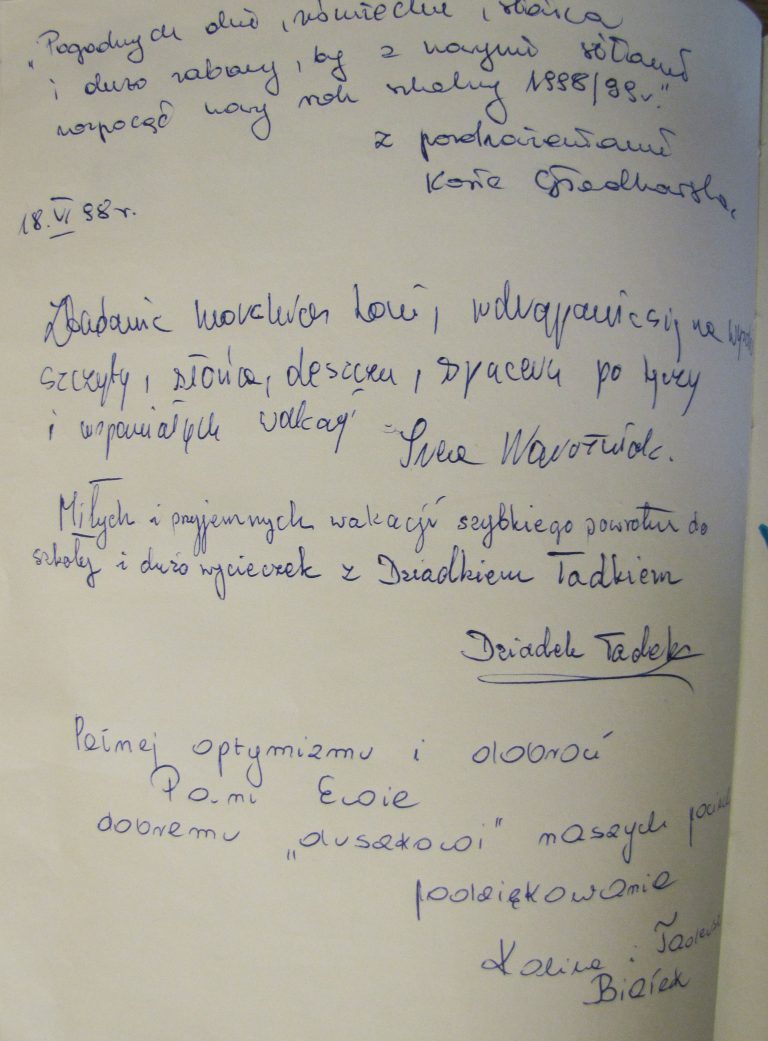 "Pogodnych dni, uśmiechu, słońca
i dużo zabawy, by z nowymi siłami
rozpocząć nowy rok szkolny 1998/99r."
z pozdrowieniami
18.VI 98r.
Zbadania morskiej toni, wdrapania się na
szczyty, słońca, deszczu, spaceru po tęczy
i wspaniałych wakacji
Miłych i przyjemnych wakacji szybkiego powrotu do
szkoły i dużo wycieczek z Dziadkiem Tadkiem
Dziadek Tadek
Pełnej optymizmu i dobroci
Pani Ewie
dobremu "duszkowi" naszych
podziękowania
Kalina i
Białek